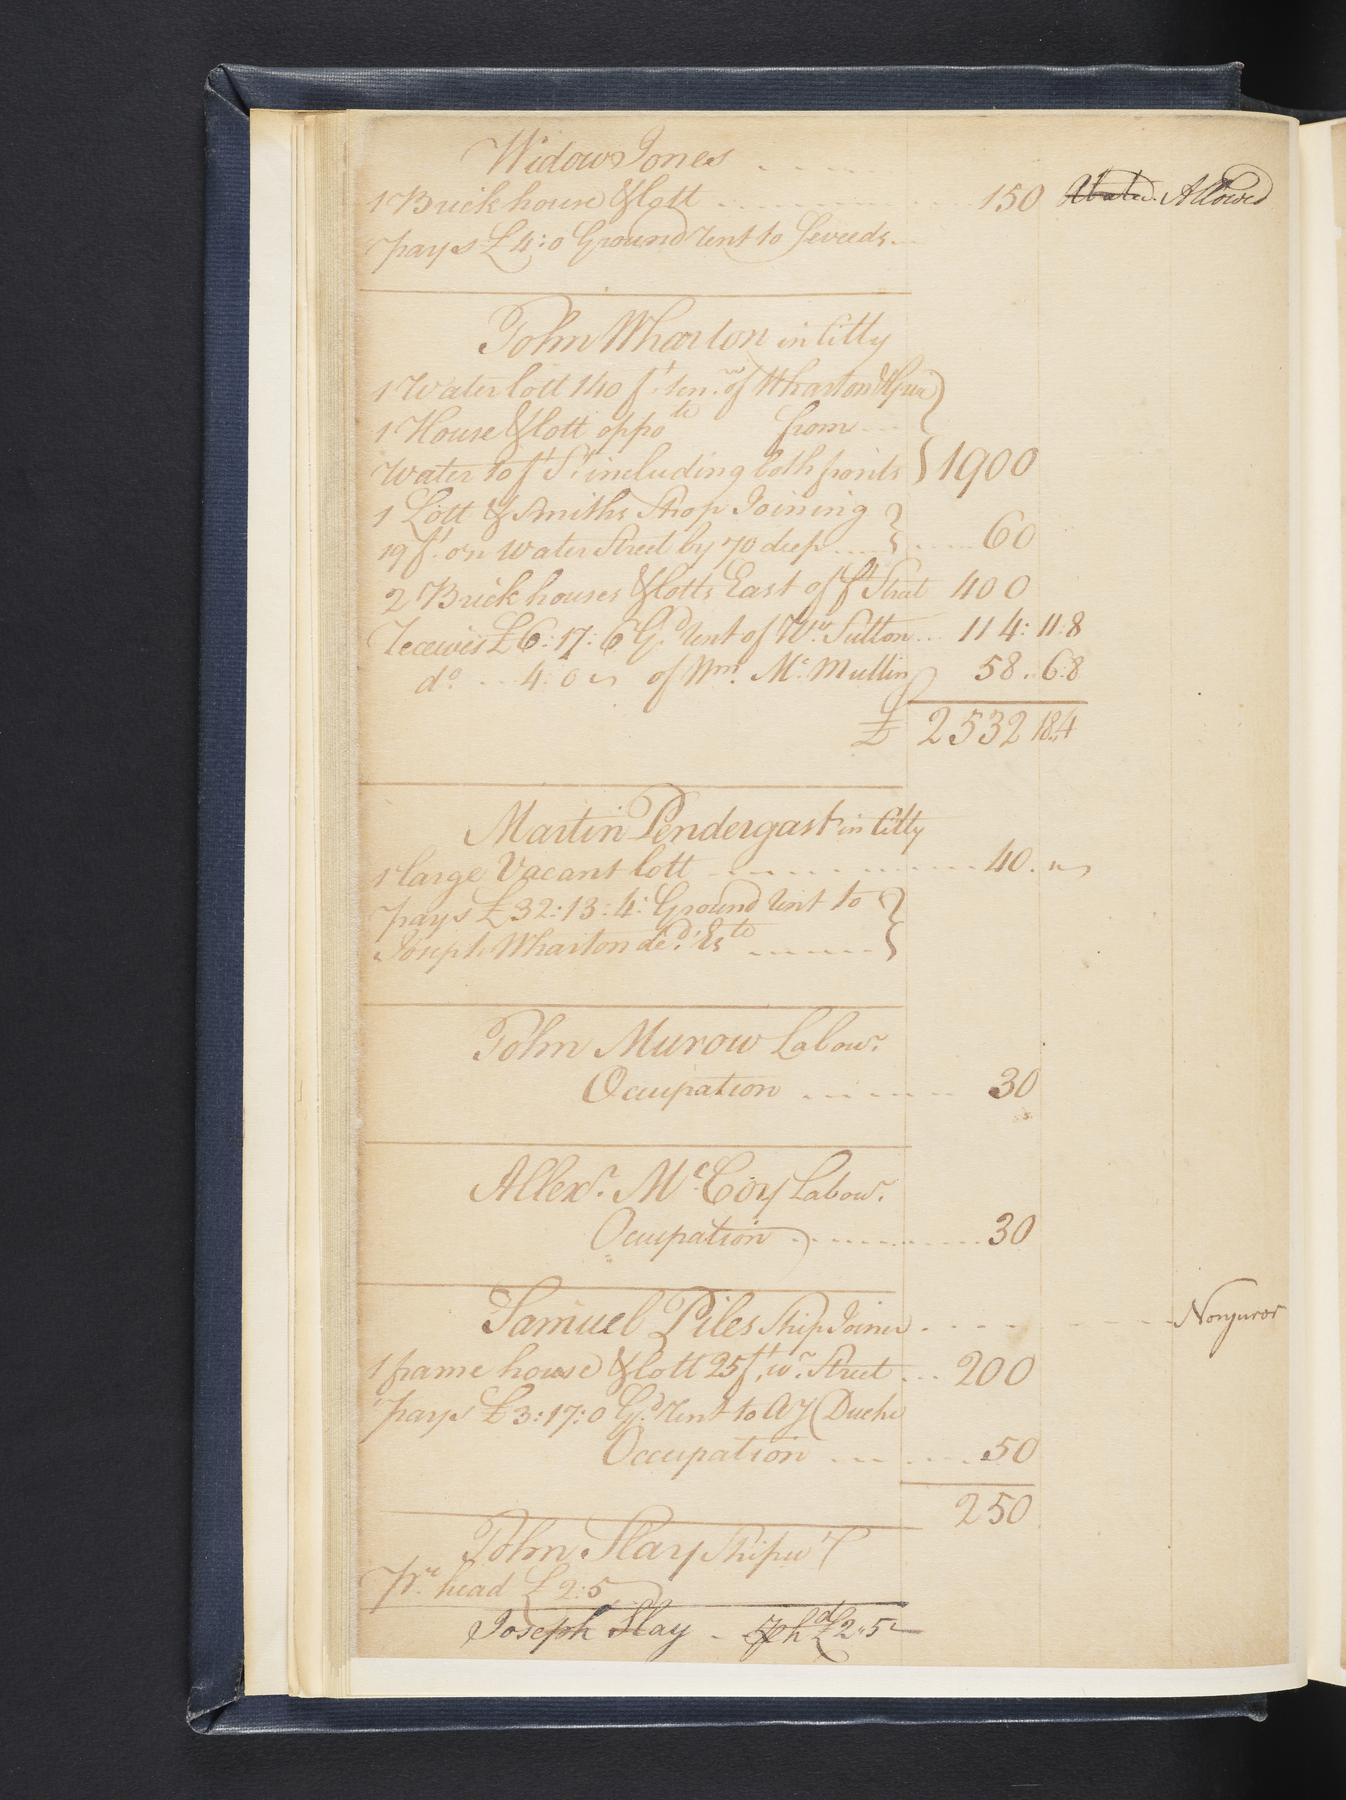 Widow Jones
1 Brick house & lott 150 Abated. Allowed
pays £ 4:0 Ground Rent to Severds
John Wharton in Citty
1 Water lott 140 ft. ten.re of Wharton &
1 House & lott oppo.te from
Water to ft St. including both fronts 1900
1 Lott & Smiths Shop Joining
19 ft. on Water Street by 70 deep 60
2 Brick houses & lotts East of ft Street 400
Receives £ 6:17:6 Gd Rent of Wm Sutton 114:11:8
do. 4:0 of Wm. Mc Mullin 58..6:8
£ 2532 18.4
Martin Pendergast in Citty
1 large Vacant lott 40.
pays £ 32:13:4: Ground Rent to
Joseph Wharton decd. Este
John Murow Labour.
Ocupation 30
Allexr. Mc Coy Labour.
Ocupation 30
Samuel Piles Ship Joiner Nonjuror
1 frame house & lott 25 ft. wr. Street 200
pays £ 3:17:0 Gd Rent to A J Duche
Occupation 50
250
John Hay Shipwt
Pr. head £ 2:5
Joseph Hay - hd £ 2"5